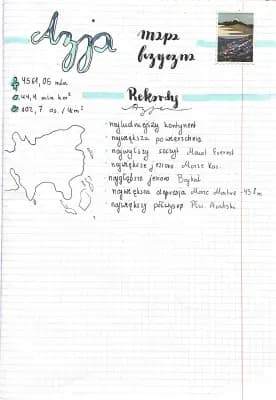 Azja
mapa
fizyczna
4561,05 mln
44,4 mln km²
102,7 os./km²
Rekordy
Azja
• najludniejszy kontynent
• największa powierzchnia
• najwyższy szczyt Mount Everest
• największe jezioro Morze Kas.
• najgłębsze jezioro Bajkał
• największa depresja Morze Martwe
• największy półwysep Płw. Arabski